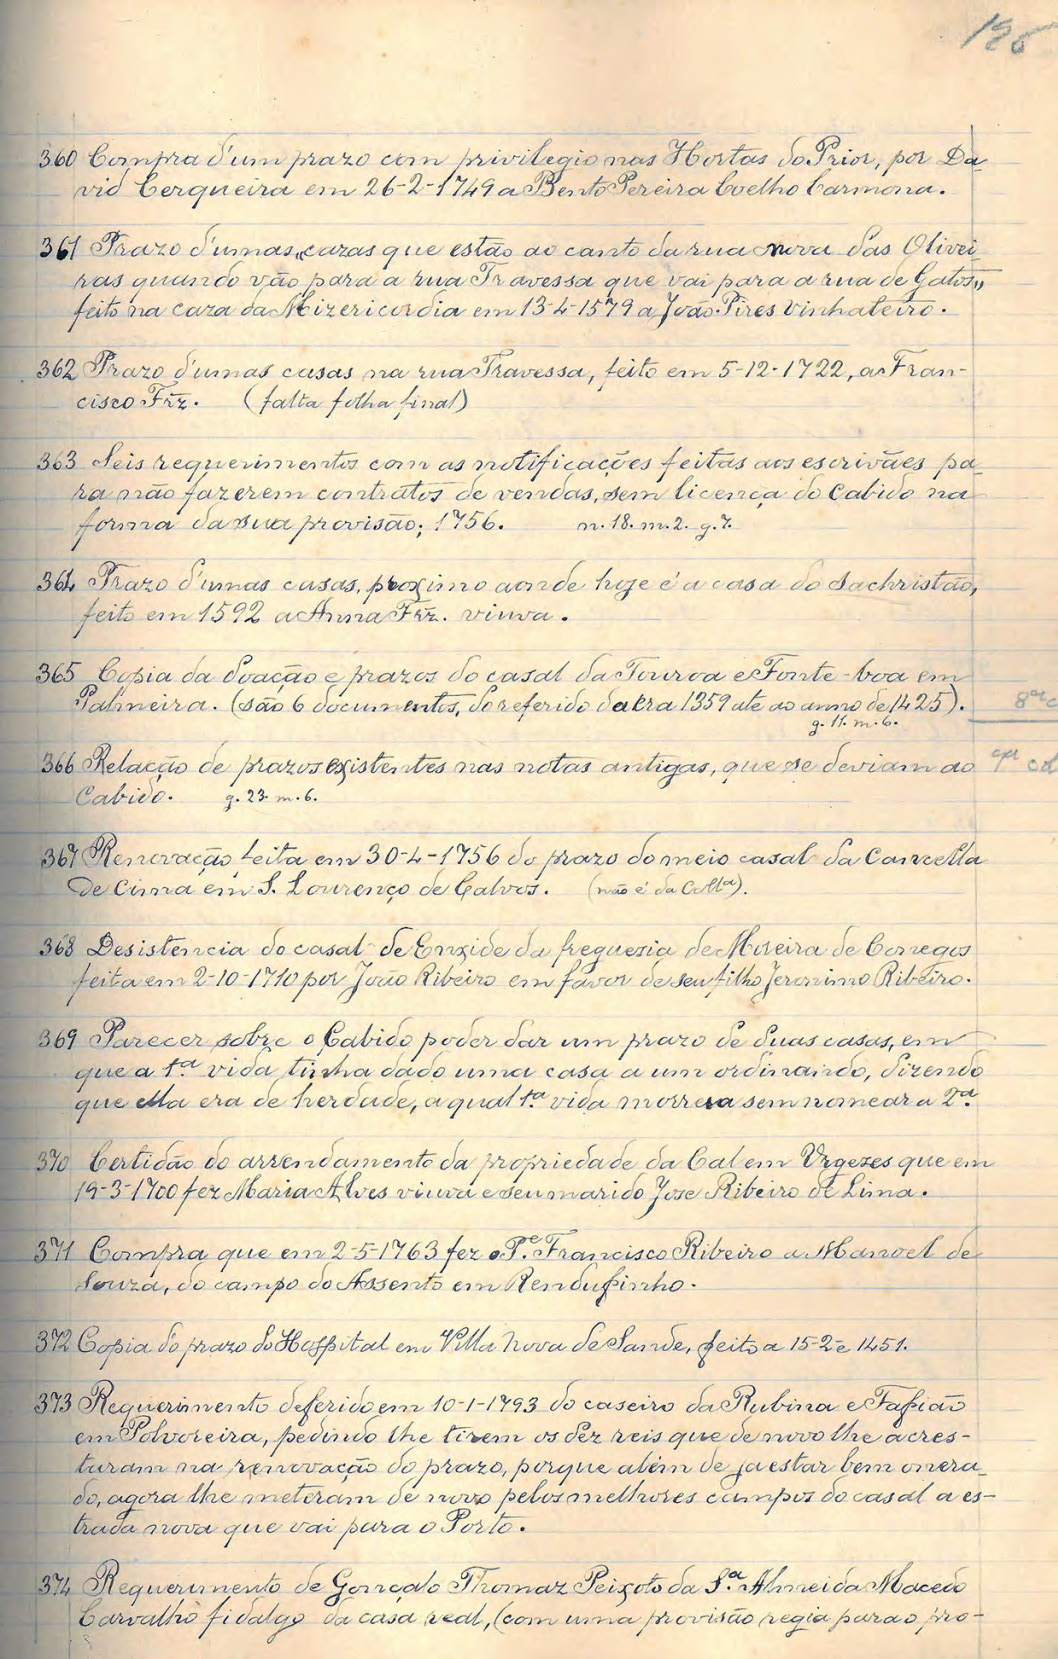 126
360 Compra d'um prazo com privilegio nas Hortas do Prior, por Da-
vid Cerqueira em 26-2-1749 a Bento Pereira Coelho Carmona.
361 Prazo d'umas „cazas que estão ao canto da rua nova das Olivei-
ras quando vão para a rua Travessa que vai para a rua de Gatos„
feito na caza da Mizericordia em 13-4-1579 a João Pires vinhateiro.
362 Prazo d'umas casas na rua Travessa, feito em 5-12-1722, a Fran-
cisco Frz. (falta folha final)
363 Seis requerimentos com as notificações feitas aos escrivães pa-
ra não fazerem contratos de vendas, sem licença do Cabido na
forma da sua provisão; 1756. n. 18. m. 2. g. 7.
364 Prazo d'umas casas, proximo aonde hoje é a casa do Sachristão,
feito em 1592 a Anna Frz. viuva.
365 Copia da doação e prazos do casal da Touroa e Fonte-boa em
Palmeira. (são 6 documentos, do referido da era 1359 ate ao anno de 1425).
g. 11. m. 6.
366 Relação de prazos existentes nas notas antigas, que se deviam ao
Cabido. g. 23 m. 6.
367 Renovação feita em 30-4-1756 do prazo do meio casal da Cancella
de Cima em S. Lourenço de Calvos. (não é da Collª).
368 Desistencia do casal de Enxide da freguesia de Moreira de Conegos
feita em 2-10-1710 por João Ribeiro em favor de seu filho Jeronimo Ribeiro.
369 Parecer sobre o Cabido poder dar um prazo de duas casas, em
que a 1.ª vida tinha dado uma casa a um ordinando, dizendo
que ella era de herdade, a qual 1.ª vida morrera sem nomear a 2.ª
370 Certidão do arrendamento da propriedade da Cal em Urgezes que em
19-3-1700 fez Maria Alves viuva e seu marido Jose Ribeiro de Lima.
371 Compra que em 2-5-1763 fez o P.e Francisco Ribeiro a Manoel de
Souza, do campo do Assento em Rendufinho.
372 Copia do prazo do Hospital em Villa Nova de Sande, feito a 15-2-1451.
373 Requerimento deferido em 10-1-1793 do caseiro da Rubina e Fafião
em Polvoreira, pedindo lhe tirem os dez reis que de novo lhe acres-
turam na renovação do prazo, porque além de ja estar bem onera-
do, agora lhe meteram de novo pelos melhores campos do casal a es-
trada nova que vai para o Porto.
374 Requerimento de Gonçalo Thomaz Peixoto da S.ª Almeida Macedo
Carvalho fidalgo da casa real, (com uma provisão regia para o pro-